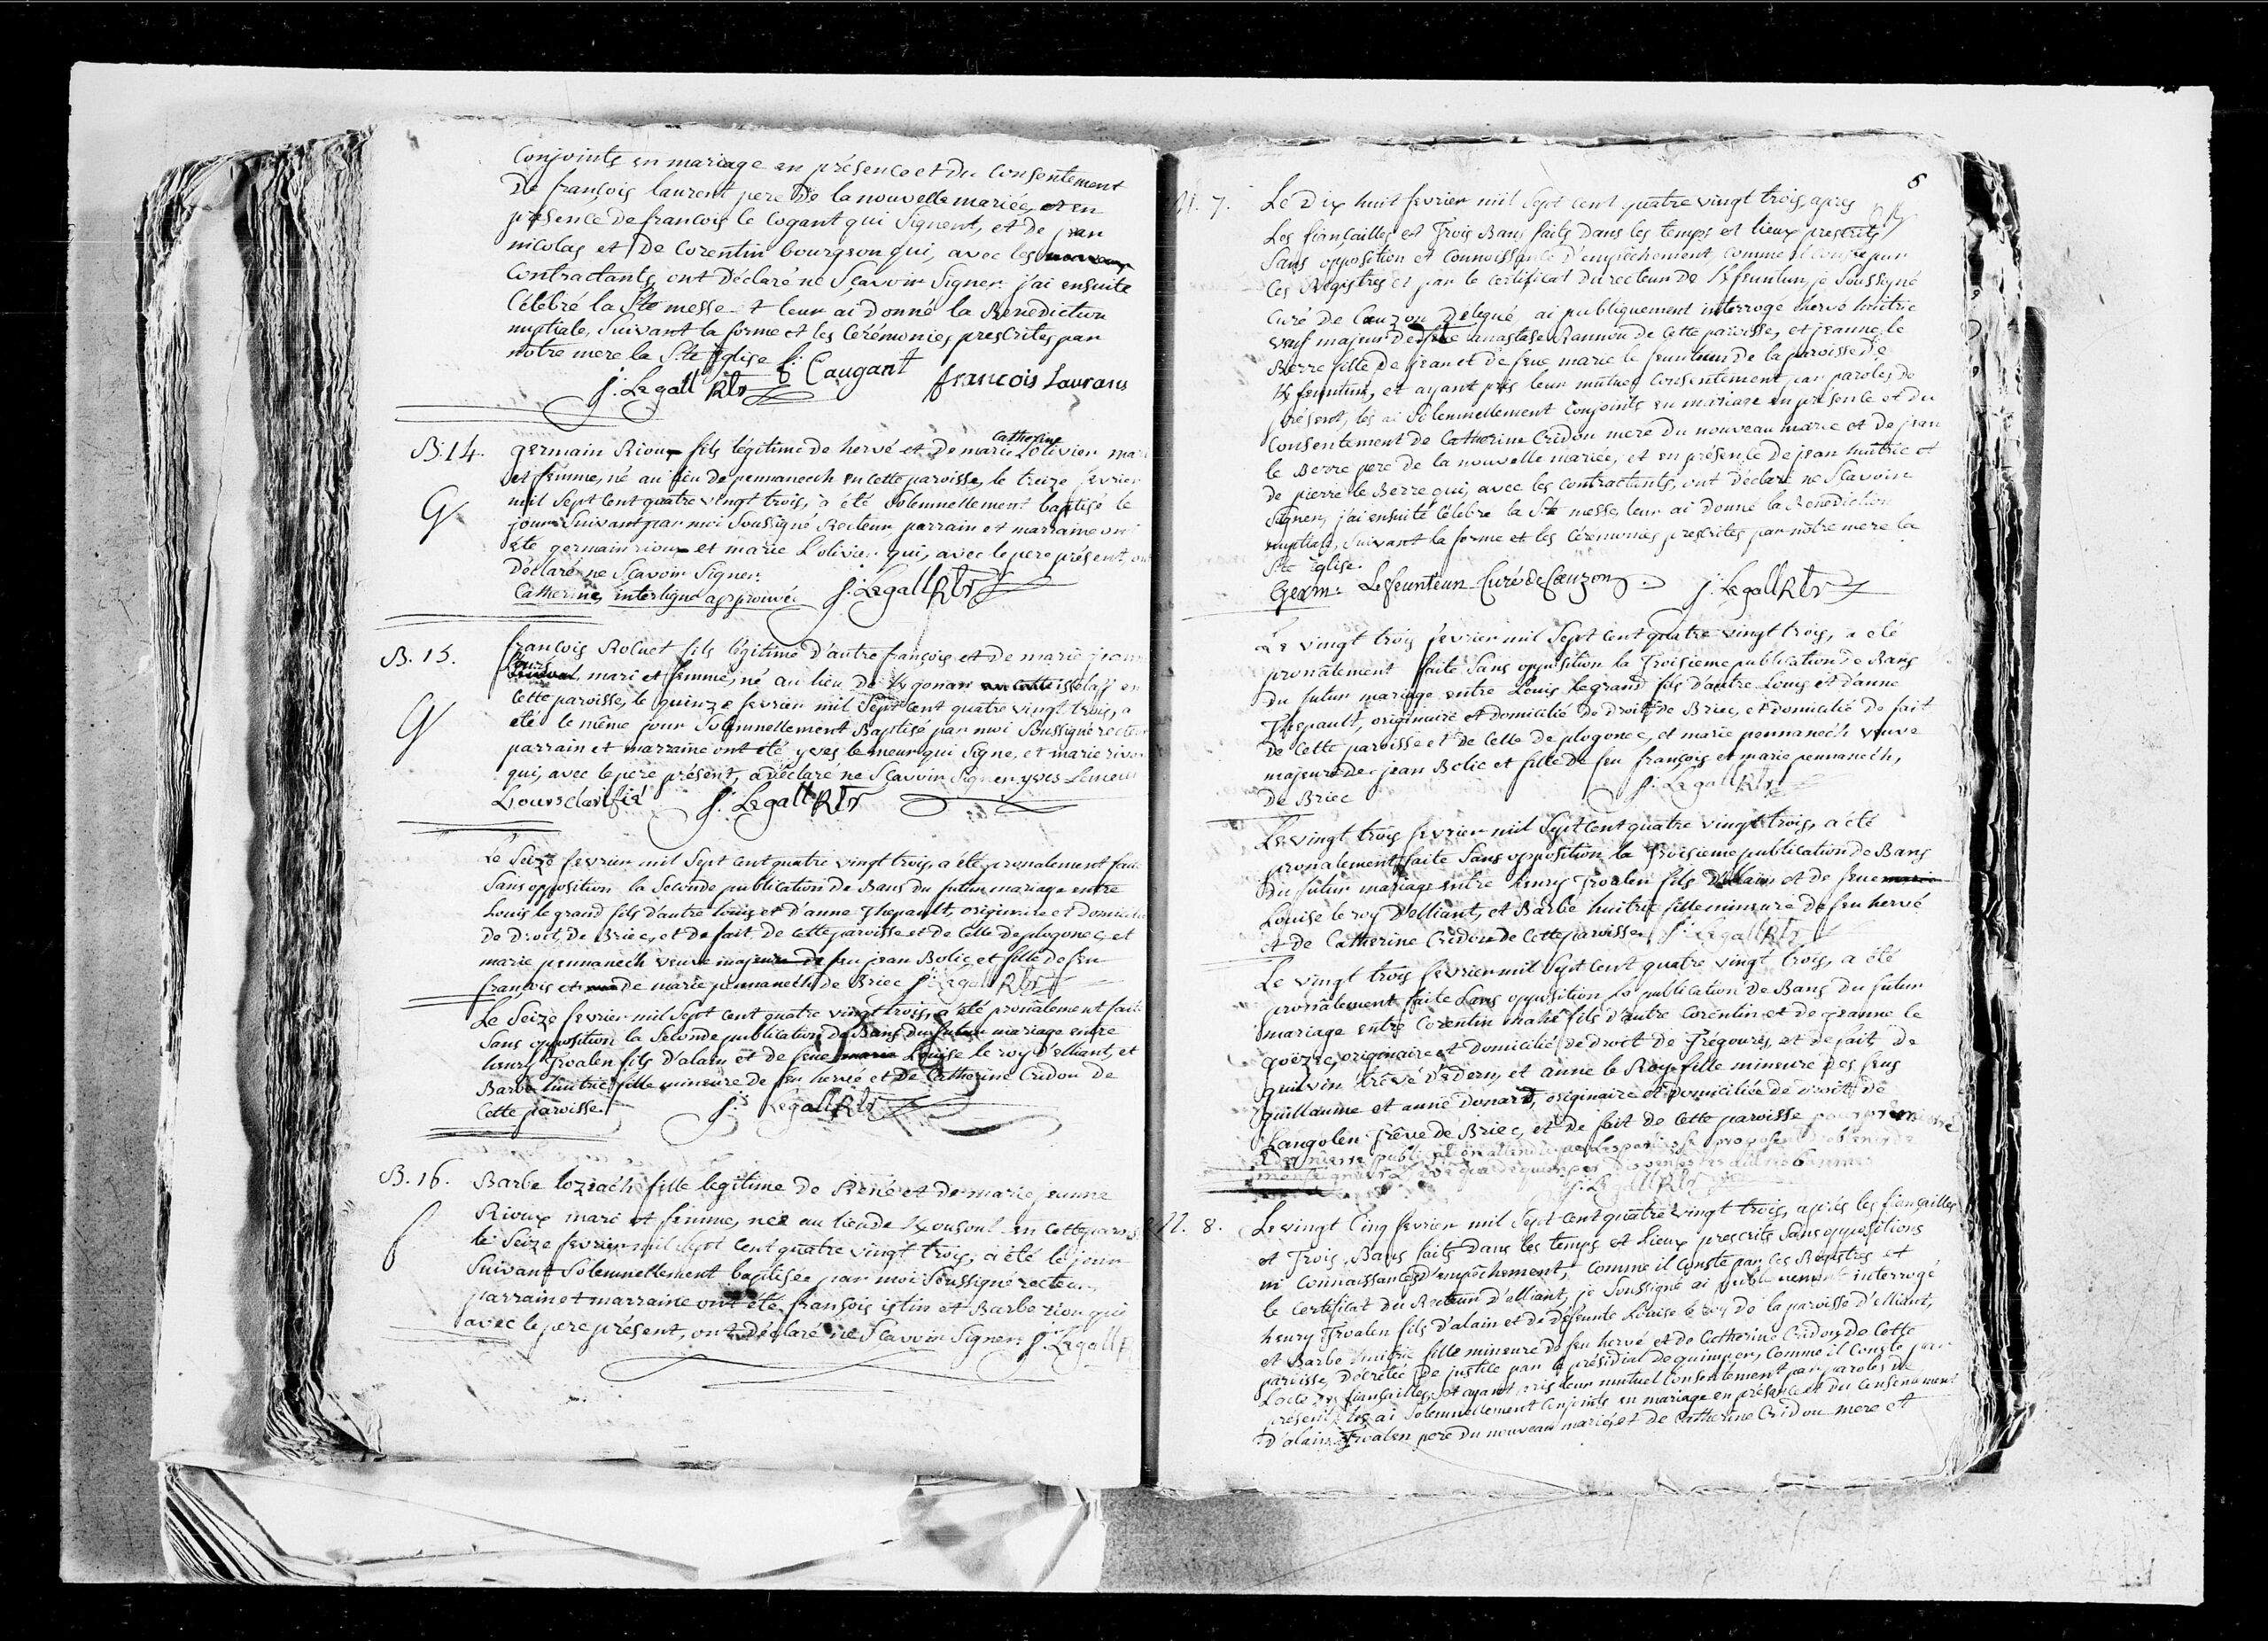 Conjoints en mariage en présence et du Consentement
De françois laurent pere De la nouvelle mariée, et en
présence De francois le Cogant qui Signent, et De jean
nicolas et De Corentin bourgeon qui, avec les
Contractants, ont Déclaré ne Sçavoir Signer. j'ai ensuite
Célébré la Ste messe et leur ai Donné la Benediction
nuptiale, Suivant la forme et les Cérémonies prescrites par
notre mere la Ste Eglise f: Caugant françois Laurans
J. Legall Rtr
B. 14. germain Rioux fils légitime de hervé et de marie Catherine L'olivier mari
et femme, né au lieu de pennanech en cette paroisse, le treize février
mil Sept Cent quatre vingt trois, a été Solemnellement baptisé le
G jour Suivant par moi Soussigné Recteur, parrain et marraine ont
été germain rioux et marie L'olivier qui, avec le pere présent, ont
Déclaré ne Sçavoir Signer.
Catherine, interligne approuvé J. Legall Rtr
B. 15. françois Rolnet fils légitime d'autre françois et de marie jeanne
Lours mari et femme, né au lieu de Kgonan isselaff en
Cette paroisse, le quinze fevrier mil Sept Cent quatre vingt trois, a
G été le même jour Solemnellement Baptisé par moi Soussigné recteur
parrain et marraine ont été yves le meur qui Signe, et marie
qui, avec le pere présent, a déclaré ne Sçavoir Signer. yves Lemeur
Lours J. Legall Rtr
Le Seize fevrier mil Sept Cent quatre vingt trois, a été pronalement faite
Sans opposition la Seconde publication De Bans Du futur mariage entre
Louis le grand fils d'autre louis et d'anne Thepault, originaire et Domicilié
De Droit, De Briec, et De fait De Cette paroisse et de Celle De plogonec, et
marie pennanech veuve majeure De feu jean Bolic, et fille De feu
françois et de marie pennanech De Briec J. Legall Rtr
Le Seize fevrier mil Sept Cent quatre vingt trois, a été pronalement faite
Sans opposition la Seconde publication De Bans Du futur mariage entre
henry Troalen fils D'alain et De feue Louise le roy d'elliant, et
Barbe huitric fille mineure De feu hervé et De Catherine Cridou De
Cette paroisse. J. Legall Rtr
B. 16. Barbe lozeach fille legitime de René et de marie jeanne
Rioux mari et femme, née au lieu de en Cette paroisse
f le Seize fevrier mil Sept Cent quatre vingt trois, a été le jour
Suivant Solemnellement baptisée par moi Soussigné recteur
parrain et marraine ont été françois istin et Barbe riou qui
avec le pere présent, ont déclaré ne Sçavoir Signer. J. Legall
6
M. 7. Le Dix huit fevrier mil Sept Cent quatre vingt trois, après
Les fiançailles et Trois Bans faits Dans les temps et lieux prescrits
Sans opposition et Connoissance d'empêchement, Comme il Conste par
Ces Registres et par le Certificat Du recteur De Kfeunteun, je Soussigné
Curé De Cauzon Délegué ai publiquement interrogé hervé huitric
veuf majeur De feue anastase Rannou de Cette paroisse, et jeanne le
Berre fille De jean et de feue marie le feunteun De la paroisse De
Kfeunteun, et ayant pris leur mutuel Consentement par paroles De
présent, les ai Solemnellement Conjoints en mariage en présence et du
Consentement de Catherine Cridou mere Du nouveau marié et De jean
le Berre pere De la nouvelle mariée, et en présence De jean huitric et
De pierre le Berre qui, avec les Contractants, ont Déclaré ne Sçavoir
Signer, j'ai ensuite Célébré la Ste messe, leur ai donné la Benediction
nuptiale, Suivant la forme et les Cérémonies prescrites par notre mere la
Ste Eglise.
Germ: Lefeunteun Curé de Cauzon J. Legall Rtr
Le vingt trois fevrier mil Sept Cent quatre vingt trois, a été
pronalement faite Sans opposition la Troisieme publication De Bans
Du futur mariage entre Louis Legrand fils D'autre Louis et D'anne
Thepault, originaire et Domicilié De Droit De Briec, et Domicilié De fait
De Cette paroisse et De Celle De plogonec, et marie pennanech veuve
majeure De jean Bolic et fille De feu françois et marie pennanech,
De Briec J. Legall Rtr
Le vingt trois fevrier mil Sept Cent quatre vingt trois, a été
pronalement faite Sans opposition la Troisieme publication De Bans
Du futur mariage entre henry Troalen fils D'alain et De feue
Louise le roy D'elliant, et Barbe huitric fille mineure De feu hervé
et De Catherine Cridou De Cette paroisse J. Legall Rtr
Le vingt trois fevrier mil Sept Cent quatre vingt trois, a été
pronalement faite Sans opposition la publication De Bans Du futur
mariage entre Corentin mahé fils d'autre Corentin et De jeanne le
goëzec, originaire et Domicilié De Droit De Trégourez, et De fait De
guilvin trêve d'edern, et anne le Roy fille mineure Des feus
guillaume et anne Donard, originaire et Domiciliée De Droit De
Langolen Trêve De Briec, et De fait De Cette paroisse pour première
et Derniere publication attendu que Les parties Se proposent D'obtenir De
J. Legall Rtr
M. 8. Le vingt Cinq fevrier mil Sept Cent quatre vingt trois, après les fiançailles
et Trois Bans faits Dans les temps et lieux prescrits Sans oppositions
ni Connaissance D'empêchement, Comme il Conste par Ces Registres et
le Certificat Du Recteur D'elliant, je Soussigné ai publiquement interrogé
henry Troalen fils D'alain et De Défeunte Louise le roy De la paroisse D'elliant,
et Barbe huitric fille mineure De feu hervé et De Catherine Cridou De Cette
paroisse, Décrétée De justice par le présidial De quimper, Comme il Conste par
Lacte De fiançailles, et ayant pris leur mutuel Consentement par paroles De
présent, les ai Solemnellement Conjoints en mariage en présence et Du Consentement
D'alain Troalen pere Du nouveau marié, et De Catherine Cridou mere et